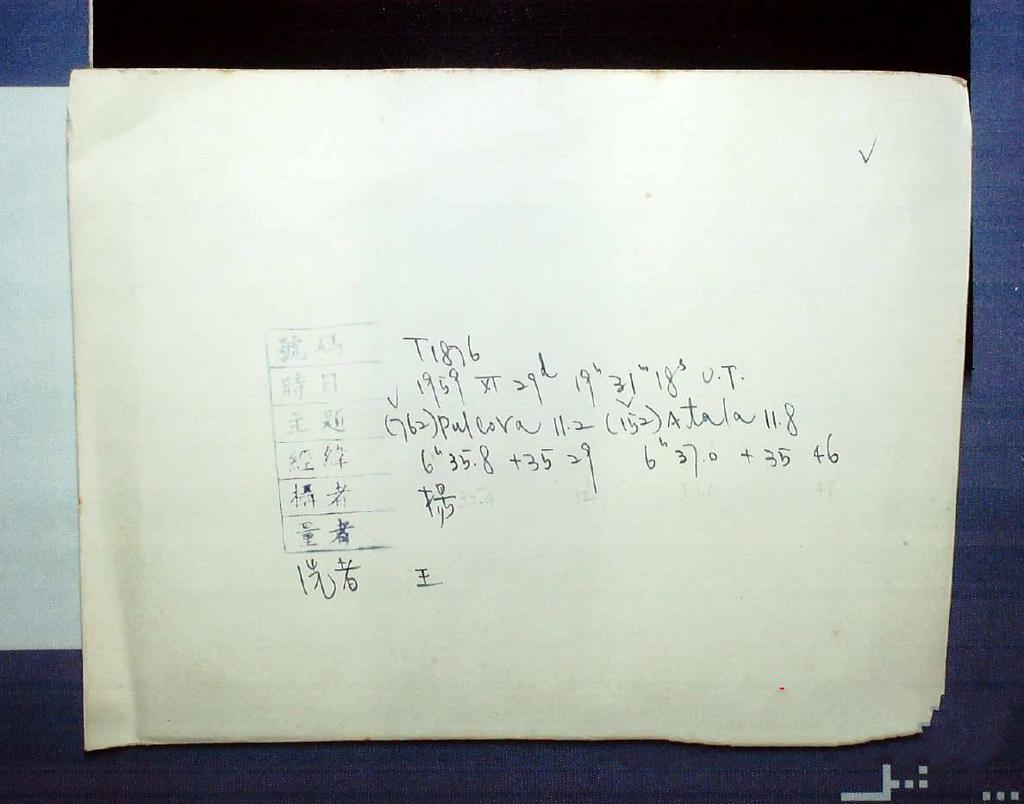 號碼 T1876
時日 1959 XI 29ᵈ 19ʰ 31ᵐ 18ˢ U.T.
主題 (762) Pulcova 11.2 (152) Atala 11.8
經緯 6ʰ 35.8 +35 29 6ʰ 37.0 +35 46
攝者 楊
量者
洗者 王